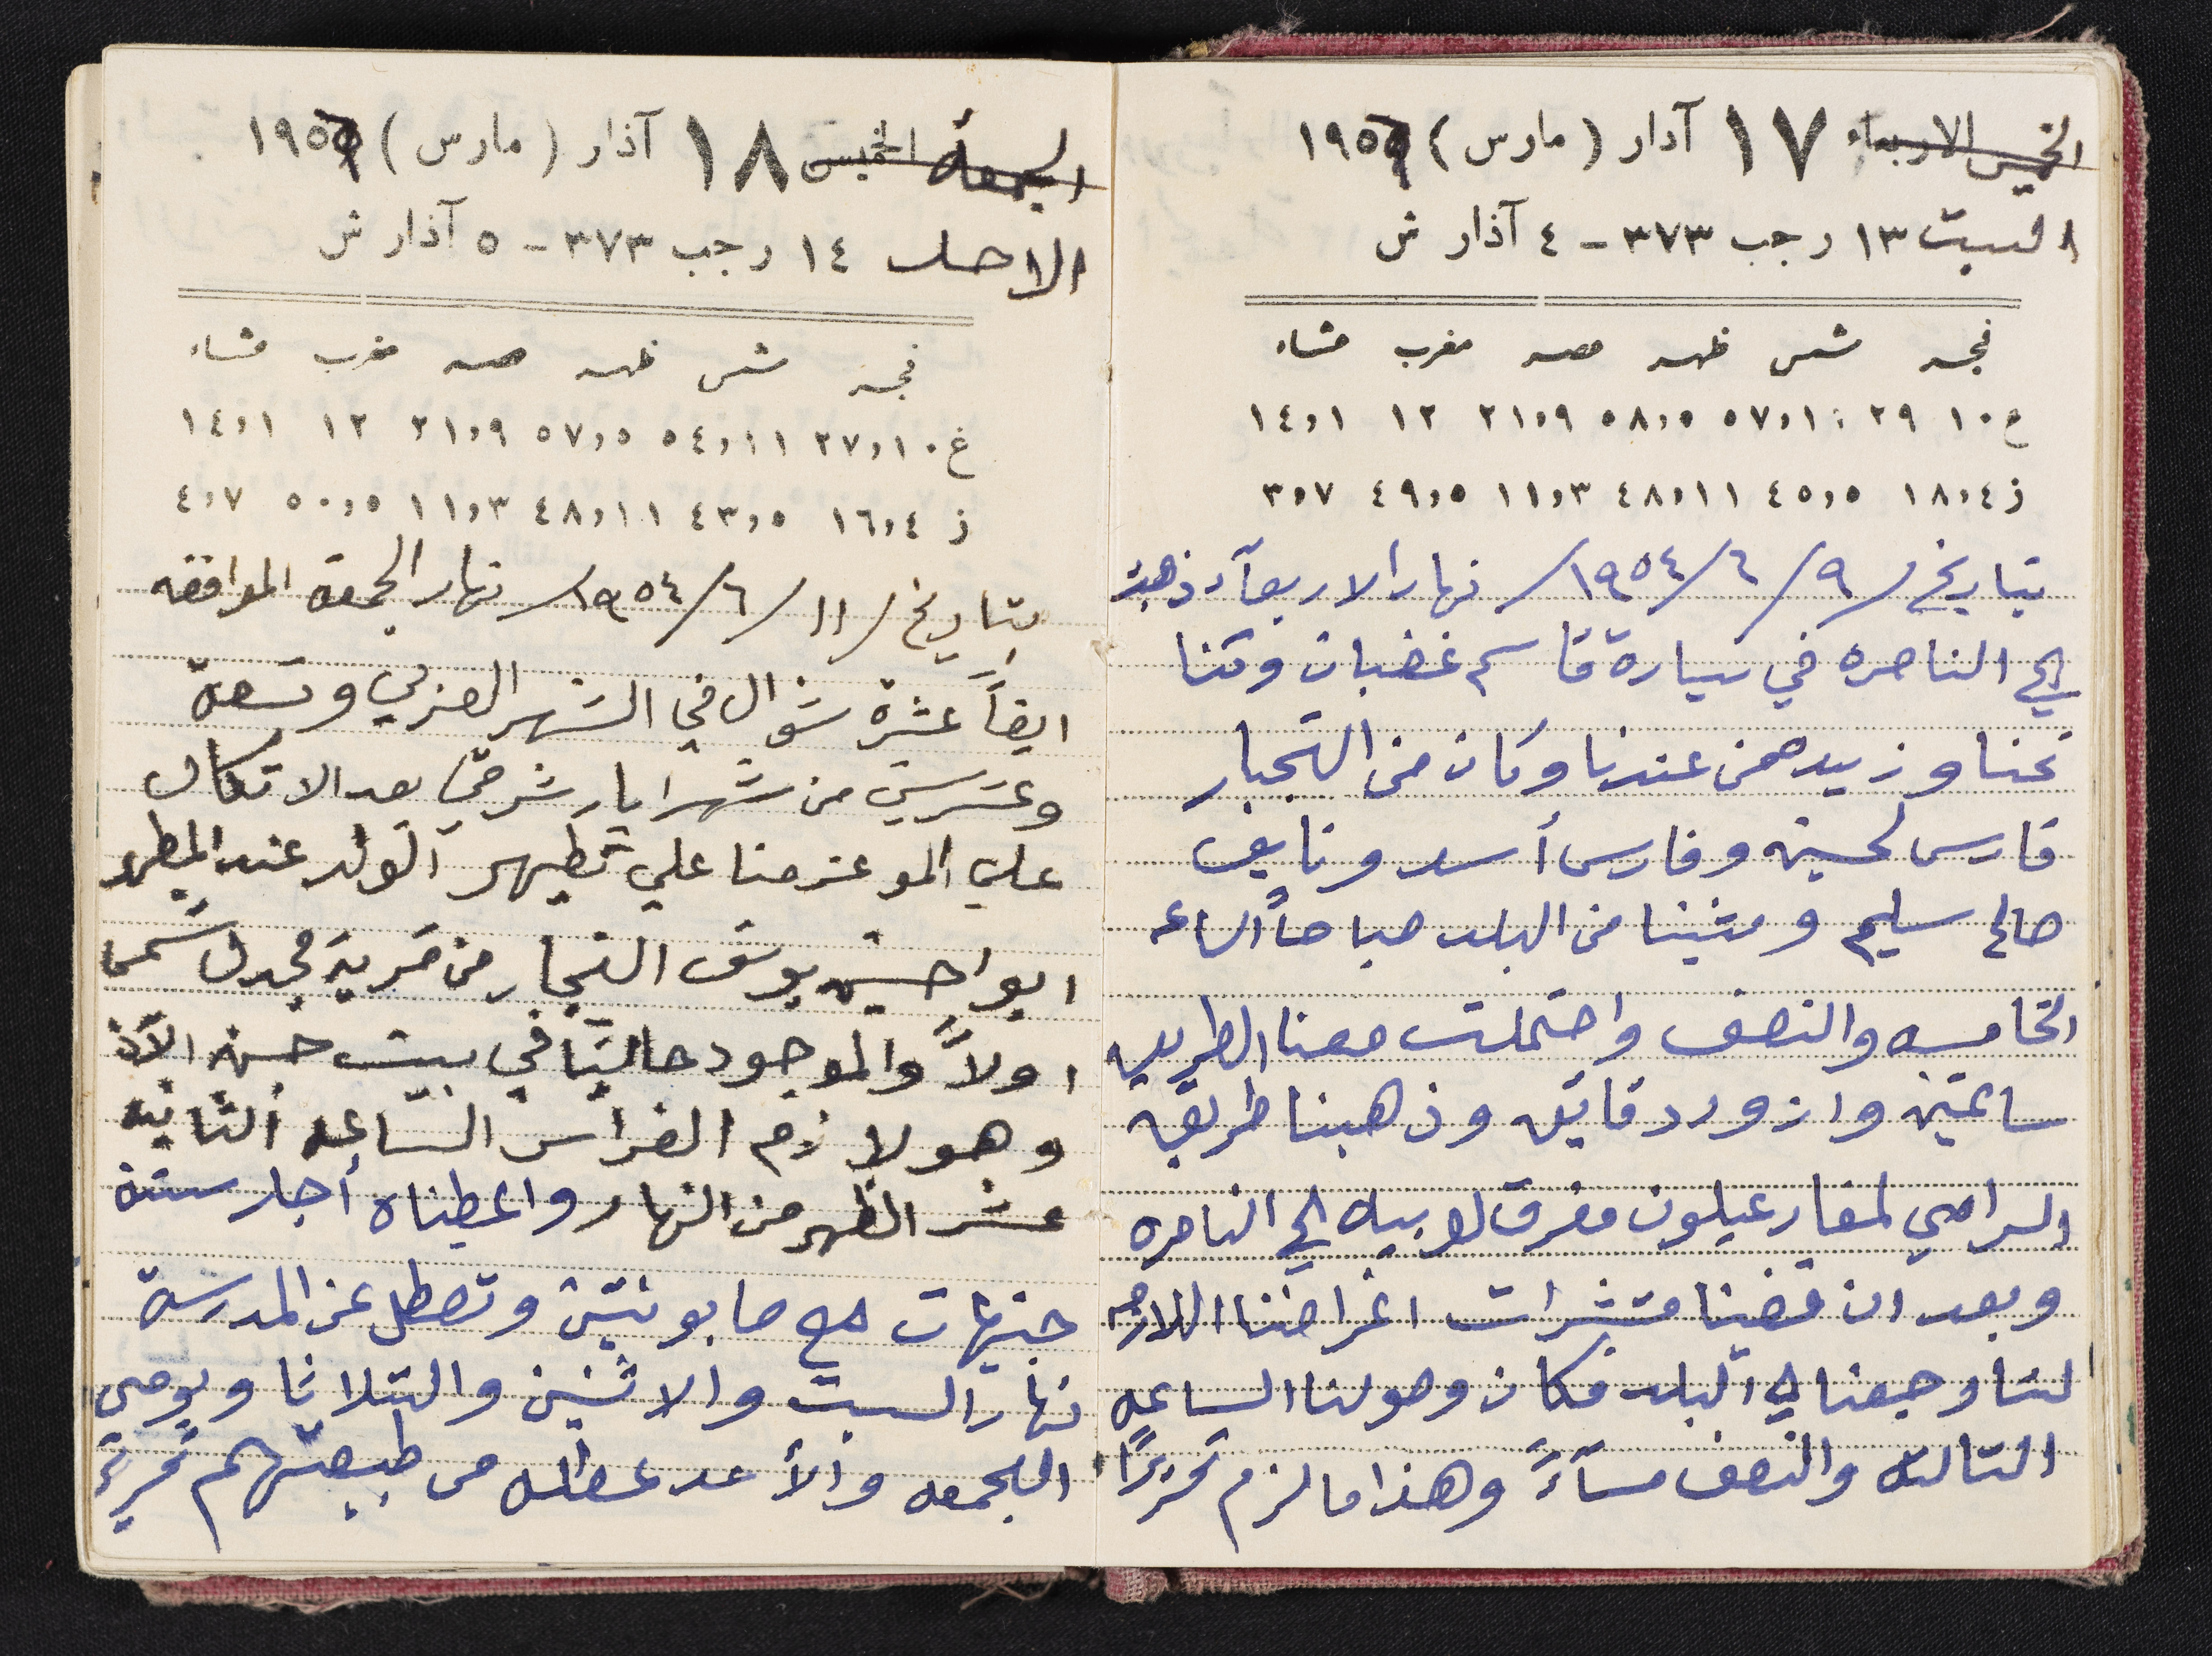 الخميس الاربعاء ١٧ آذار (مارس) ١٩٥٦
السبت ١٣ رجب ٣٧٣ - ٤ آذار ش
فجر شمس ظهر عصر مغرب عشاء
غ ١٠ ٢٩ ٥٧,١١ ٥٨,٥ ٢١,٩ ١٢ ١٤,١
ز ١٨,٤ ٤٥,٥ ٤٨,١١ ١١,٣ ٤٩,٥ ٣,٧
بتاريخ /٩/٦/١٩٥٤/ نهار الاربعآء ذهبت
الى الناصره في سيارة قاسم غضبان وكنا
نحنا وزيدهمن عندنا وكان من التجار
فارس لحسين وفارس أسد ونايف
صالح سليم ومشينا من البلد صباحاً الساعه
الخامسه والنصف واحتملت معنا الطريق
ساعتين وازود دقايق وذهبنا طريق
الرامي لمغار عيلبون مفرق لوبيه الى الناصره
وبعد ان قضينا مشترات اغراضنا اللازمه
لنا رجعنا الى البلد فكان وصولنا الساعه
التالته والنصف مسآءً وهذا ما لزم تحريرًا
الجمعة الخميس ١٨ آذار (مارس) ١٩٥٦
الاحد ١٤ رجب ٣٧٣ - ٥ آذار ش
فجر شمس ظهر عصر مغرب عشاء
غ ٢٧,١٠ ٥٤,١١ ٥٧,٥ ٢١,٩ ١٢ ١٤,١
ز ١٦,٤ ٤٣,٥ ٤٨,١١ ١١,٣ ٥٠,٥ ٤,٧
بتاريخ /١١/٦/١٩٥٤/ نهار الجمعة الموافقه
ايضاً عشرة شوال في الشهر العربي وتسعة
وعشرين من شهر ايار شرقي بعد الاتكال
على المو عزمنا على تطهير الولد عند المطهر
ابو احسين يوسف النجار من قرية مجدل شمس
اولاً والموجود حاليًا في بيت جن الآن
وهو لازم الفراش الساعه الثانيه
عشر الظهر من النهار واعطيناه أجار ستة
جنيهات مع صابونتين وتعطل عن المدرسة
نهار السبت والاثنين والتلاثا ويومي
الجمعه والأحد عطله من طبيعتهم تحريرً